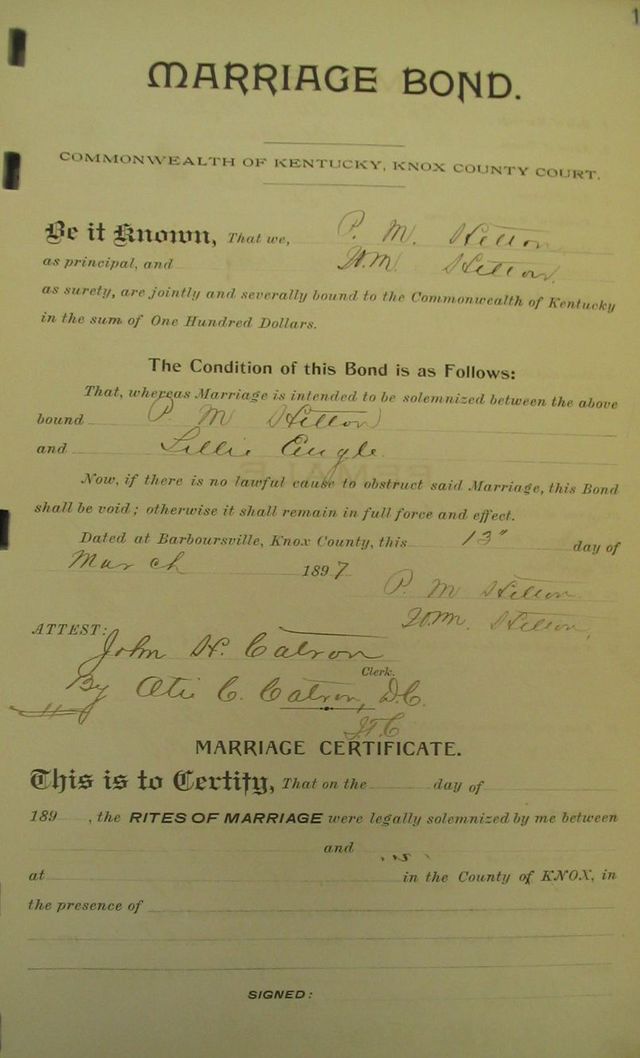 1
MARRIAGE BOND.
COMMONWEALTH OF KENTUCKY, KNOX COUNTY COURT.
Be it Known, That we, P. M. Hilton
as principal, and Wm Hilton.
as surety, are jointly and severally bound to the Commonwealth of Kentucky
in the sum of One Hundred Dollars.
The Condition of this Bond is as Follows:
That, whereas Marriage is intended to be solemnized between the above
bound P M Hilton
and Lillie Engle.
Now, if there is no lawful cause to obstruct said Marriage, this Bond
shall be void; otherwise it shall remain in full force and effect.
Dated at Barboursville, Knox County, this 13" day of
March 1897
P. M Hilton
Wm. Hilton,
ATTEST:
John H. Catron
Clerk.
By Otis C. Catron, D.C.
MARRIAGE CERTIFICATE.
This is to Certify, That on the day of
189 , the RITES OF MARRIAGE were legally solemnized by me between
and
at in the County of KNOX, in
the presence of
SIGNED: